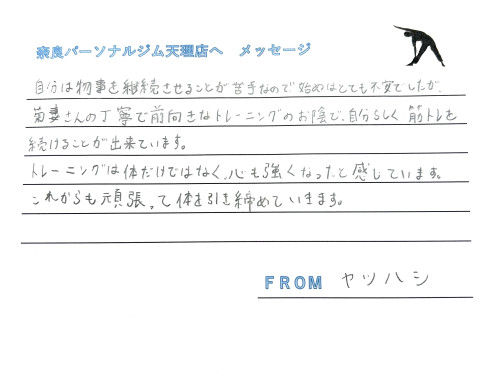 奈良パーソナルジム天理店へ メッセージ
自分は物事を継続させることが苦手なので始めはとても不安でしたが、
菊妻さんの丁寧で前向きなトレーニングのお陰で、自分らしく筋トレを
続けることが出来ています。
トレーニングは体だけではなく、心も強くなったと感じています。
これからも頑張って体を引き締めていきます。
FROM ヤツハシ